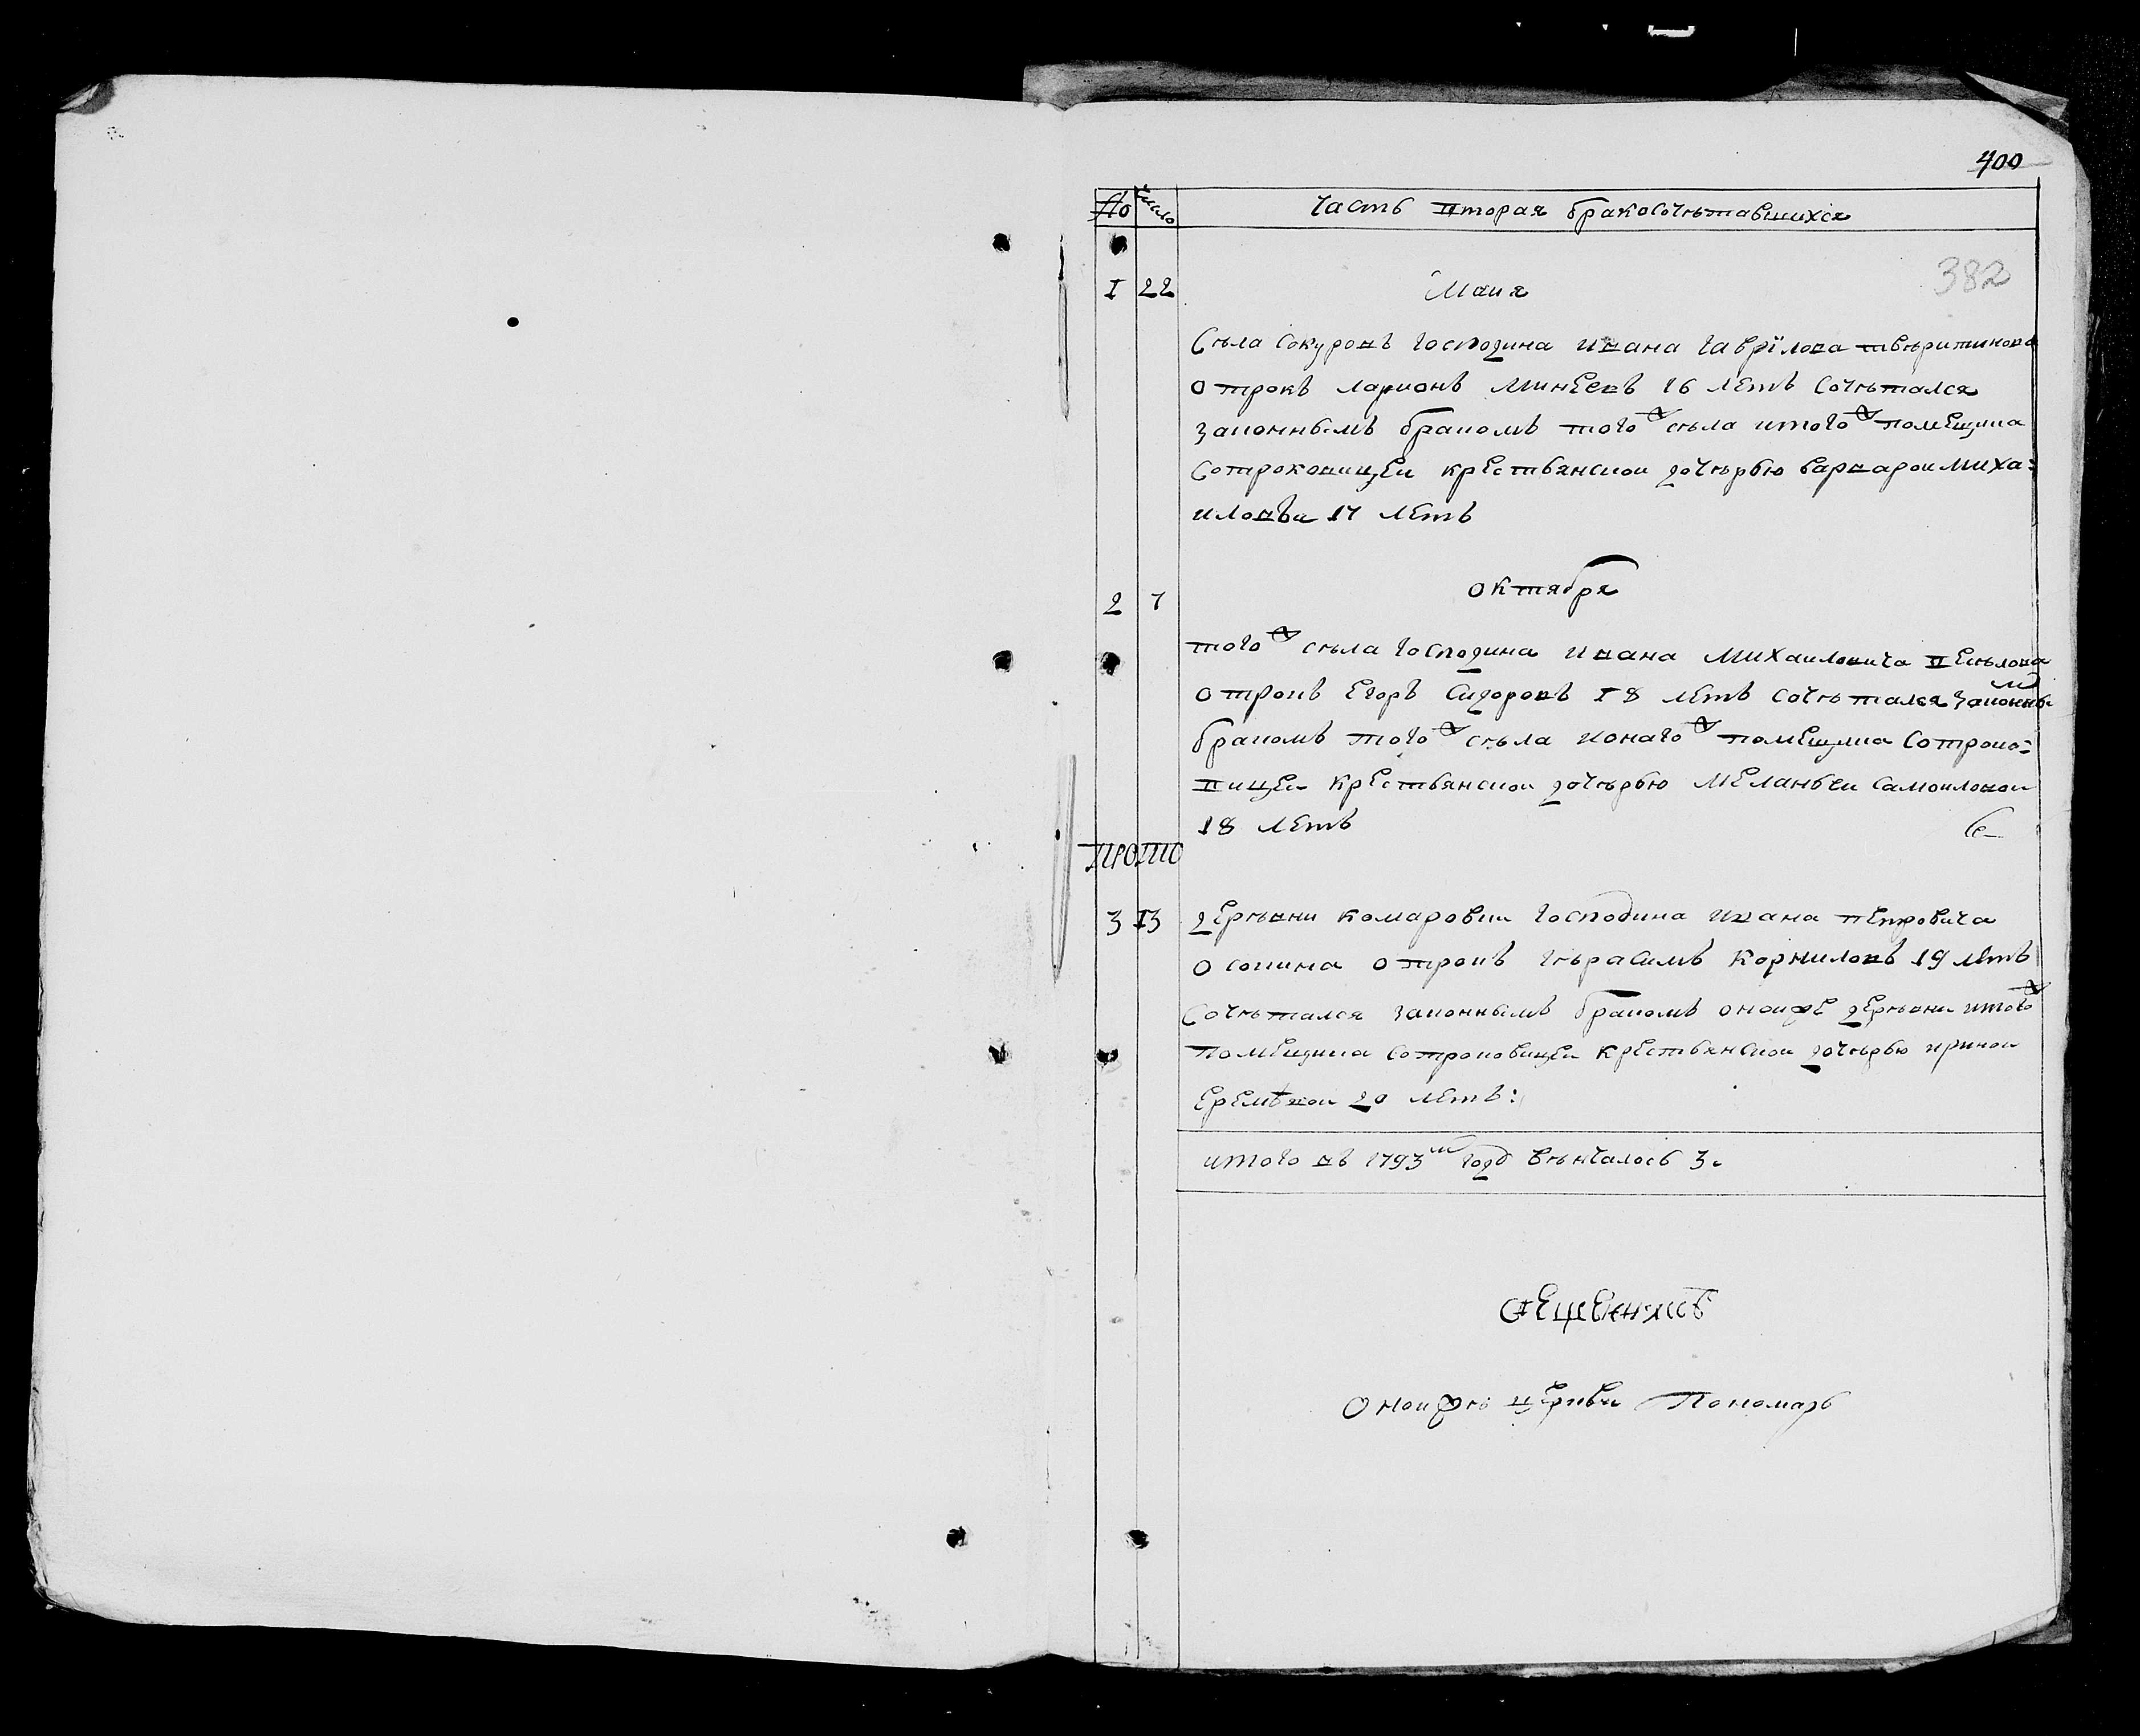 400
No число Часть вторая бракосочѣтавшихся
382
1 22 Маия
Сѣла Сокуровъ господина ивана гаврїлова твѣритинова
отрокъ ларионъ минеевъ 16 летъ сочѣтался
законнымъ бракомъ того ж сѣла итого ж помещика
Сотроковицеи крестьянскои дочѣрью варварои миха=
иловы 17 летъ
октября
2 7
того ж сѣла господина ивана михаиловича
отрокъ егоръ сидоровъ 18 летъ сочѣтался законны м
бракомъ того ж сѣла ионаго ж помещика Сотроко=
вицеи крестьянскои дочѣрью меланьеи самоиловои
18 летъ
3 13 деревни комаровки господина ивана петровича
осокина отрокъ гѣрасимъ корниловъ 19 летъ
Сочѣтался законнымъ бракомъ оноиже деревни итого ж
помещика сотроковицеи крестьянскои дочѣрью ириною
еремѣвои 20 летъ:
итого въ 1793 м годД вѣнчалось 3.
Оноижѣ церкви Пономарь